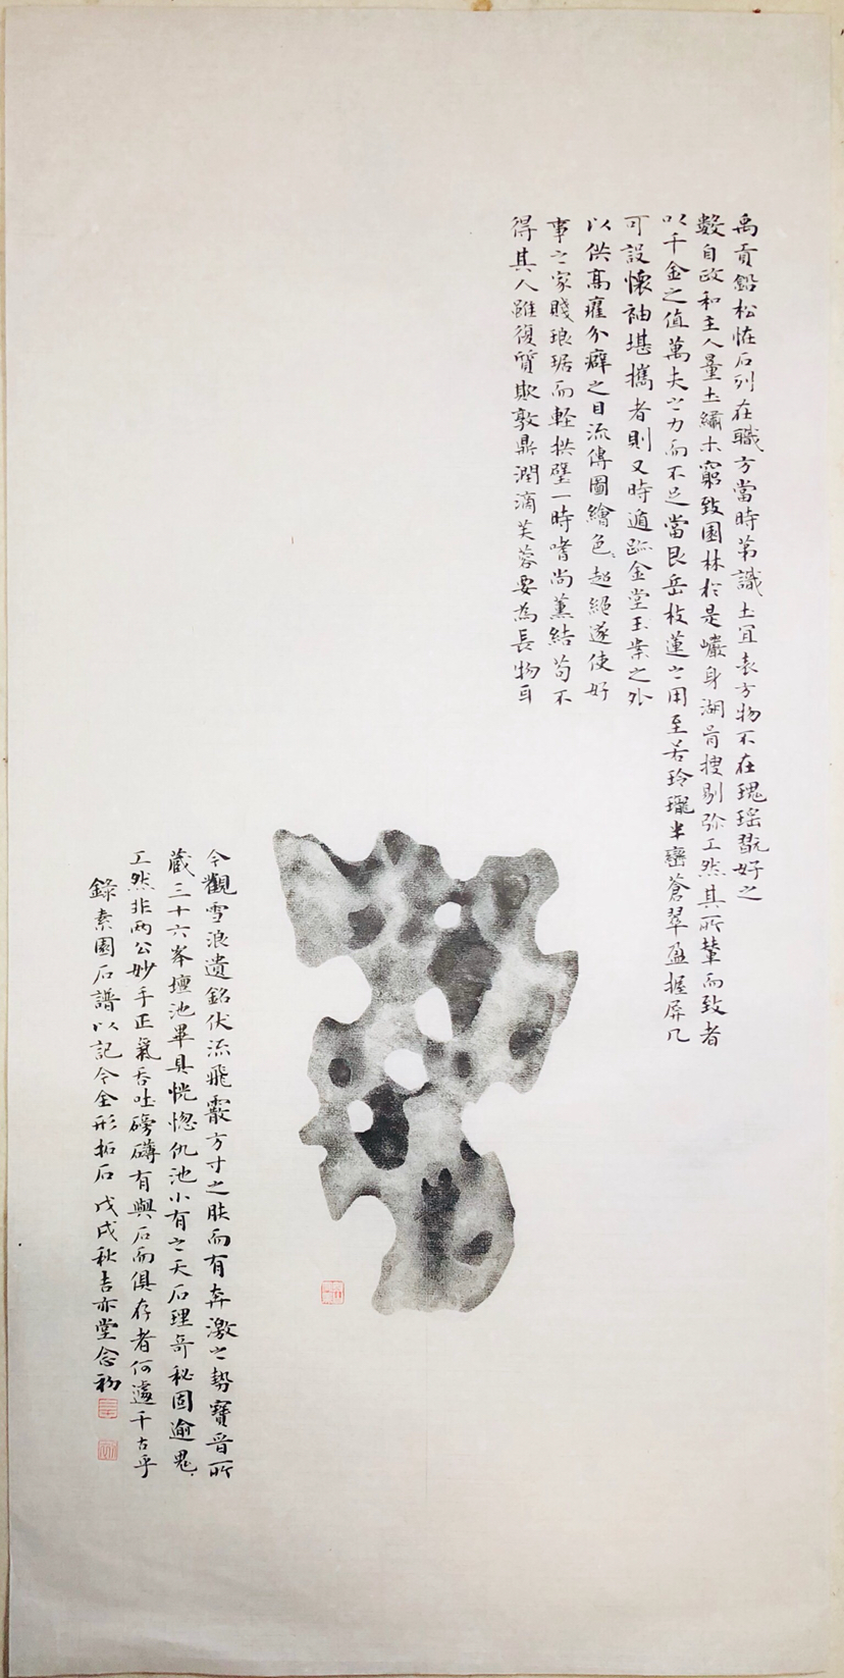 禹貢鉛松怪石列在職方當時第識土宜表方物不在瑰瑶翫好之
數自政和主人量土繡木窮致園林於是巖身湖骨搜剔弥工然其所輦而致者
以千金之值萬夫之力而不足當艮岳枚蓮之用至若玲瓏半巒蒼翠盈握屏几
可設懷袖堪攜者則又時遁跡金堂玉案之外
以供高癯介癖之目流傳圖繪色超絕遂使好
事之家賤琅琚而輕拱璧一時嗜尚薰結苟不
得其人雖復質欺敦鼎潤滴芙蓉要為長物耳
今觀雪浪遺銘伏流飛霰方寸之膚而有奔激之勢寶晉所
藏三十六峯壇池畢具恍惚仇池小有之天石理奇秘固逾鬼
工然非兩公妙手正氣吞吐磅礴有與石而俱存者何遽千古乎
錄素園石譜以記今全形拓石 戊戌秋吉亦堂念初